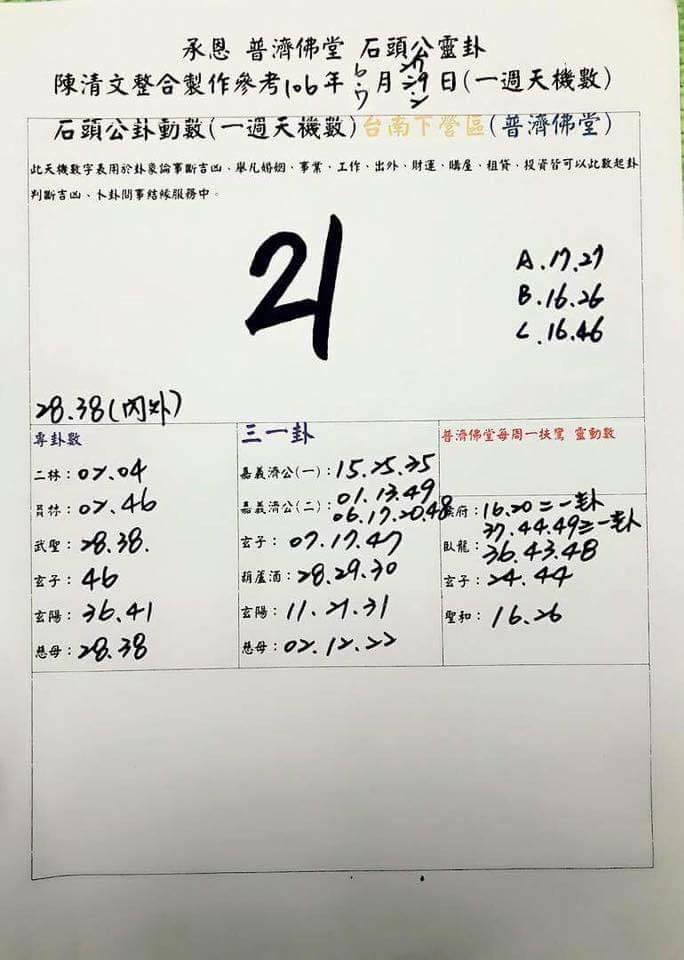 承恩 普濟佛堂 石頭公靈卦
陳清文整合製作參考106年6.7月27.29.2日(一週天機數)
石頭公卦動數(一週天機數)台南下營區(普濟佛堂)
此天機數字表用於卦象論事斷吉凶、舉凡婚姻、事業、工作、出外、財運、購屋、租貸、投資皆可以此數起卦
判斷吉凶、卜卦問事結緣服務中。
21
A.17.27
B.16.26
C.16.46
28.38(內外)
專卦數
二林:02.04
員林:02.46
武聖:28.38.
玄子:46
玄陽:36.41
慈母:28.38
三一卦
嘉義濟公(一):15.25.35
嘉義濟公(二):01.13.49
06.17.20.48
玄子:07.17.47
葫蘆酒:28.29.30
玄陽:11.21.31
慈母:02.12.22
普濟佛堂每周一扶鸞 靈動數
府:16.20=一卦
37.44.49=一卦
臥龍:36.43.48
玄子:24.44
聖和:16.26